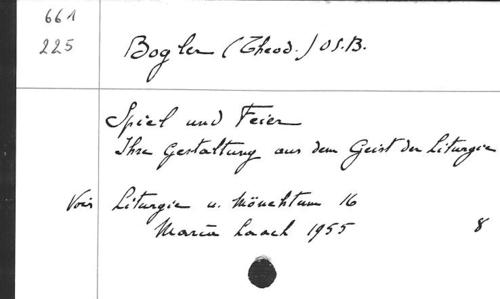 661
225
Bogler (Theod.) OS.B.
Spiel und Feier
Ihre Gestaltung aus dem Geist der Liturgie
Voir Liturgie u. Mönchtum 16
Maria Laach 1955 8